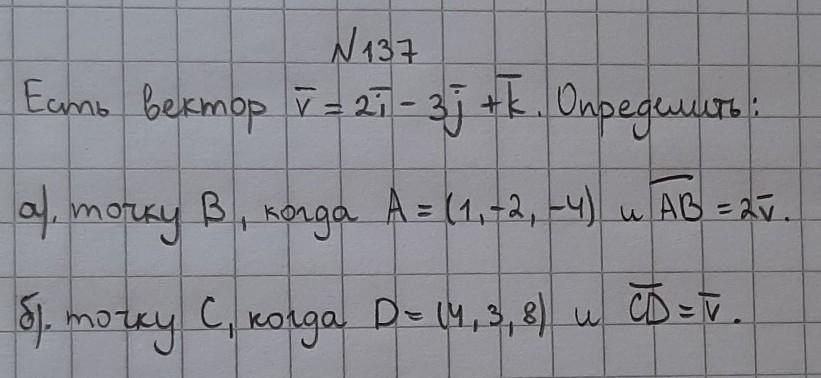 N 137
Есть вектор v̅ = 2i̅ - 3j̅ + k̅. Определить:
а). точку B, когда A = (1, -2, -4) и A̅B̅ = 2v̅.
б). точку C, когда D = (4, 3, 8) и C̅D̅ = v̅.